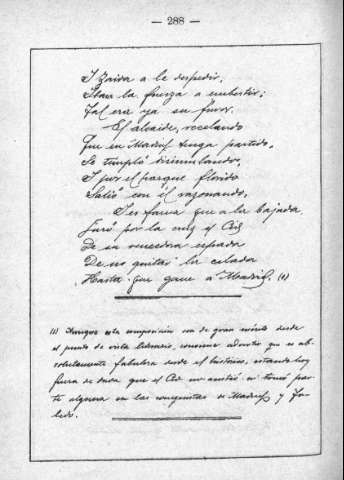 — 288 —
Y Zaida a le despedir,
Iban la fuerza a embestir;
Tal era ya su furor.
El alcaide, recelando
Que en Madrid tenga partido,
Se templó disimulando,
Y por el parque florido
Salió con él razonando.
Y es fama que a la bajada
Juró por la cruz el Cid
De su vencedora espada
De no quitar la celada
Hasta que gane a Madrid. (1)
(1) Aunque esta composición sea de gran mérito desde
el punto de vista literario, conviene advertir que es ab-
solutamente fabulosa desde el histórico, estando hoy
fuera de duda que el Cid no asistió ni tomó par-
te alguna en las conquistas de Madrid y To-
ledo.